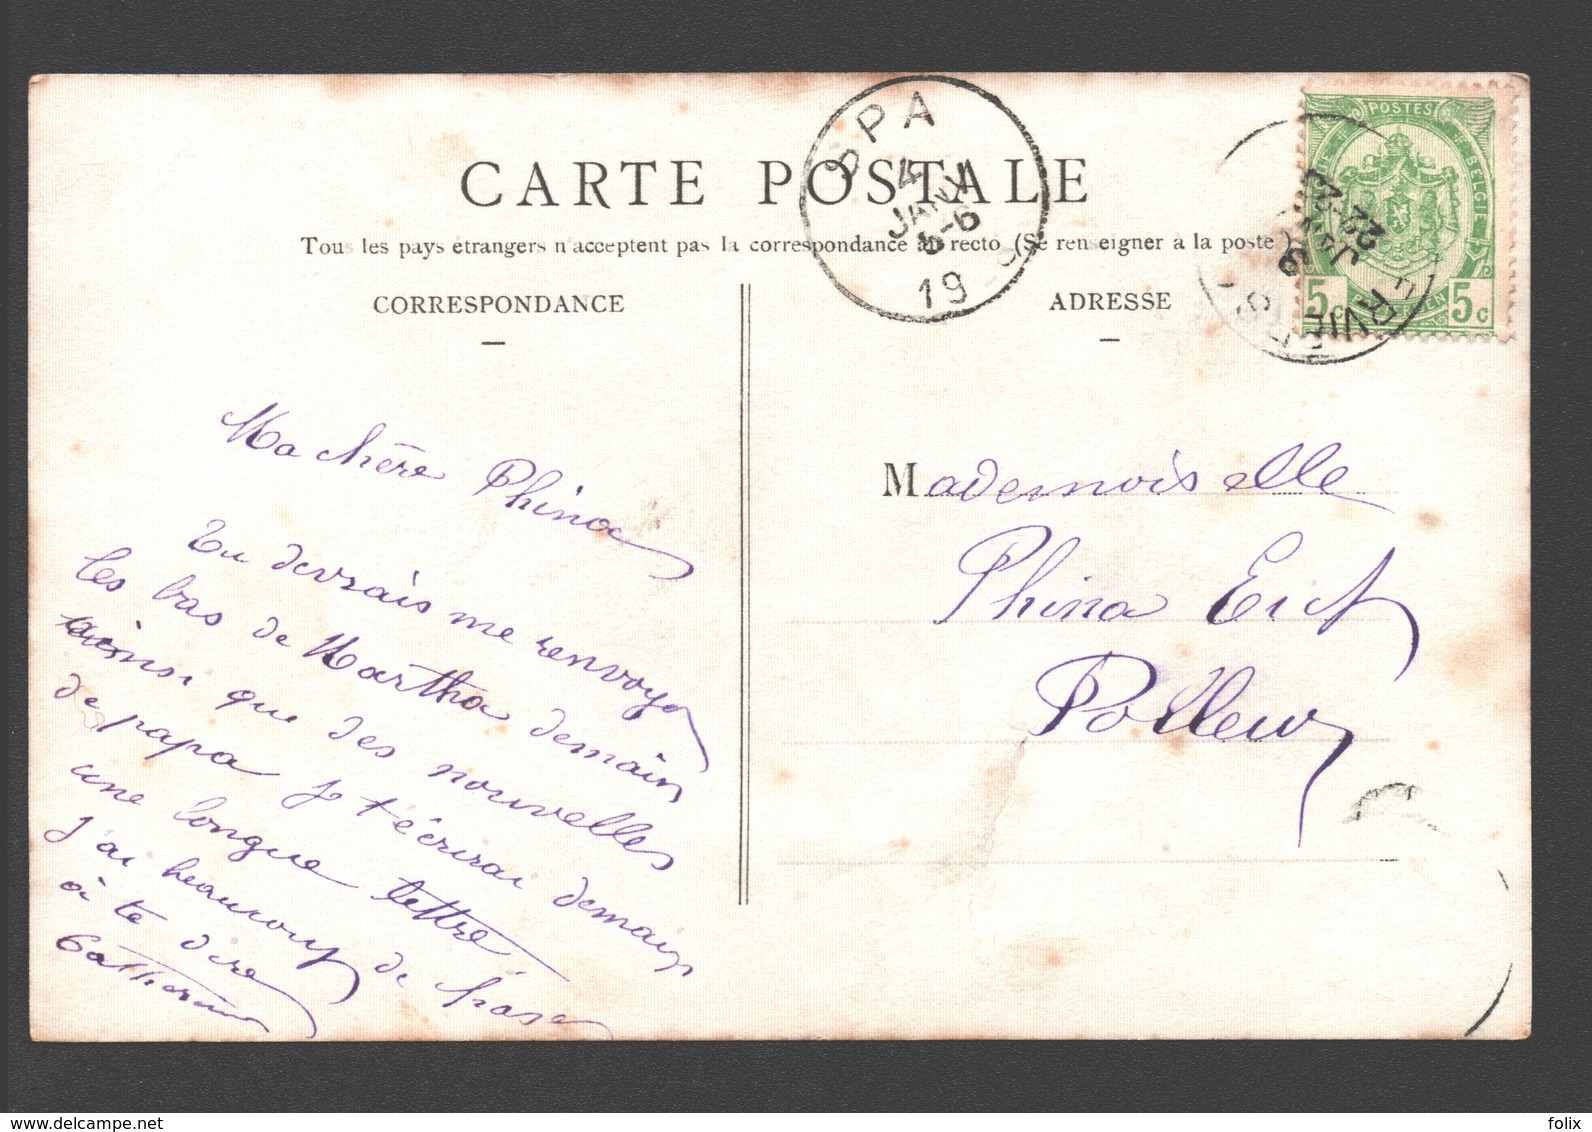 CARTE POSTALE
Tous les pays étrangers n'acceptent pas la correspondance au recto (Se renseigner à la poste)
CORRESPONDANCE
ADRESSE
SPA
4
JANV
5-6
19
POSTES
BELGIQUE
5c
5c
22-23
VERVIERS
Ma chère Phina
Tu devrais me renvoyer
les bas de Martha demain
ainsi que des nouvelles
de papa je t'écrirai demain
une longue lettre
J'ai beaucoup de chose
à te dire
Catherine
Mademoiselle
Phina
Polleur
www.delcampe.net
folix